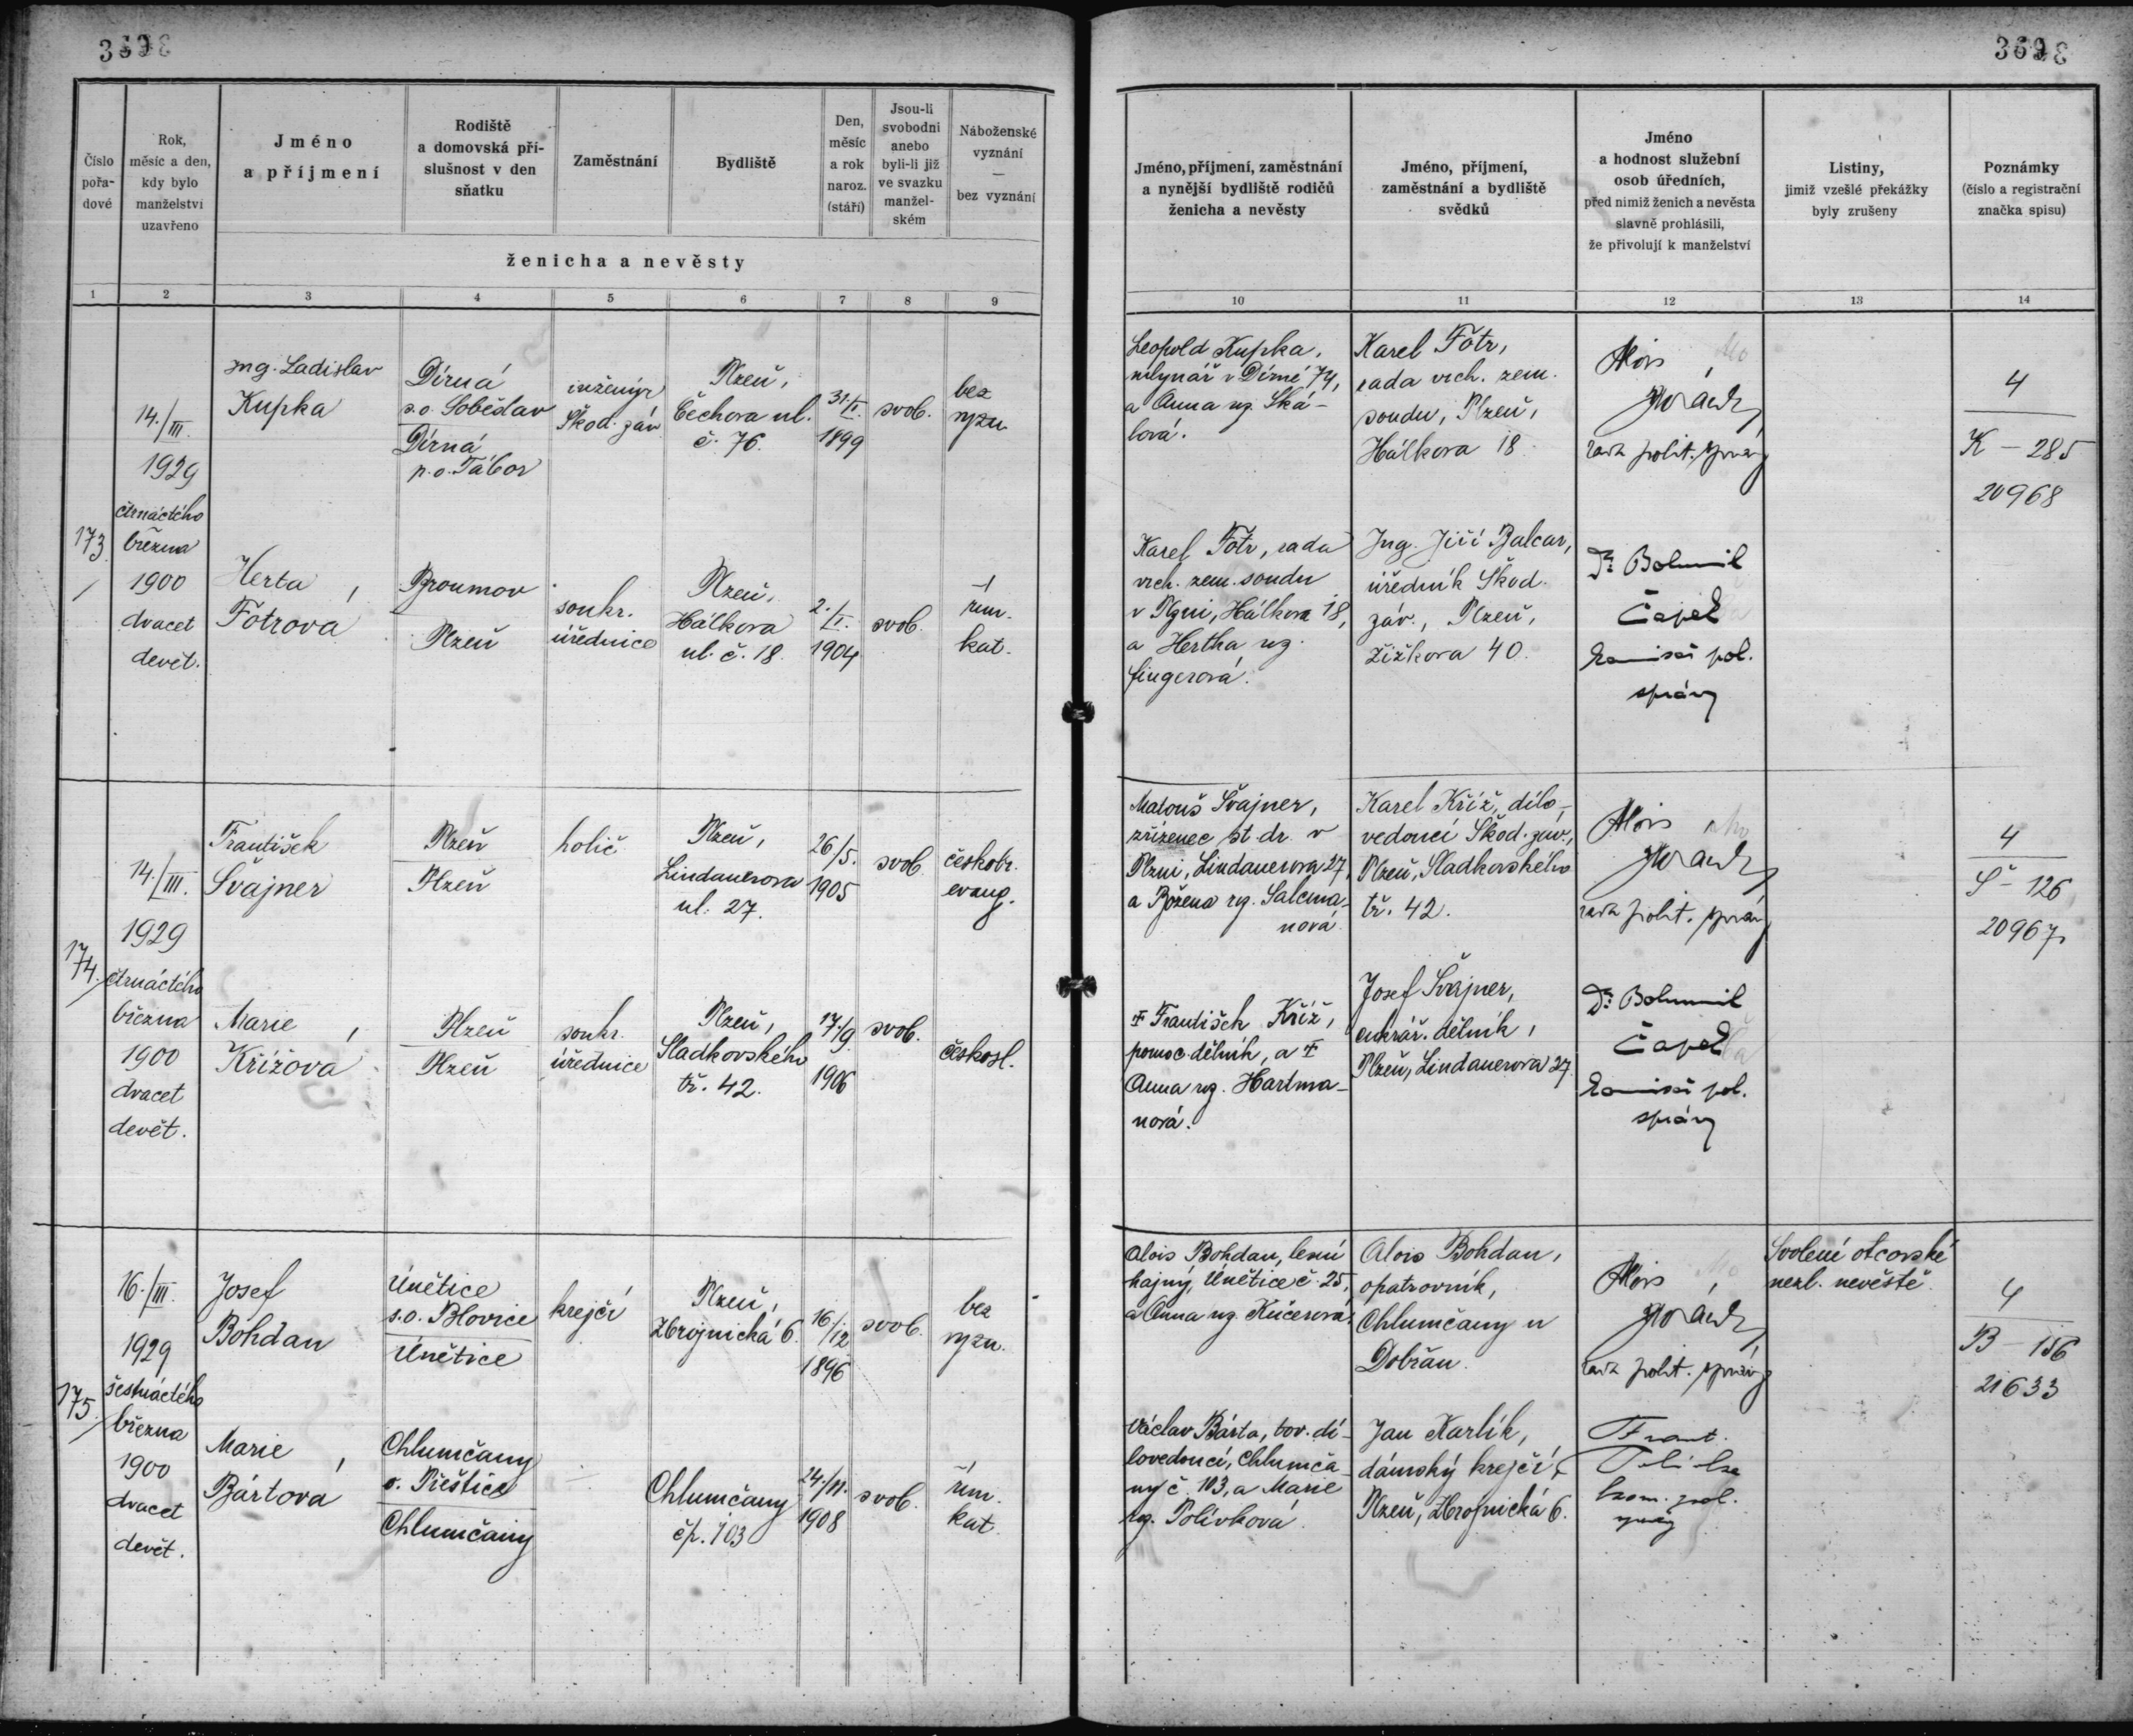 369
Číslo pořa- dové
Rok, měsíc a den, kdy bylo manželství uzavřeno
Jméno a příjmení
Rodiště a domovská pří- slušnost v den sňatku
Zaměstnání
Bydliště
Den, měsíc a rok naroz. (stáří)
Jsou-li svobodni anebo byli-li již ve svazku manžel- ském
Náboženské vyznání — bez vyznání
ženicha a nevěsty
1 2 3 4 5 6 7 8 9
173
14./III.
1929
čtrnáctého
března
1900
dvacet
devět.
Ing. Ladislav
Kupka
Dírná
s.o. Soběslav
Dírná
p.o. Tábor
inženýr
Škod. záv.
Plzeň,
Čechova ul.
č. 76.
31./I.
1899
svob.
bez
vyzn.
Herta,
Fötrová
Broumov
Plzeň
soukr.
úřednice
Plzeň,
Hálkova
ul. č. 18.
2./I.
1904
svob.
řím.
kat.
174.
14./III.
1929
čtrnáctého
března
1900
dvacet
devět.
František
Švajner
Plzeň
Plzeň
holič
Plzeň,
Lindauerova
ul. 27.
26/5.
1905
svob.
českobr.
evang.
Marie,
Křížová
Plzeň
Plzeň
soukr.
úřednice
Plzeň,
Sladkovského
tř. 42.
17./9.
1906
svob.
českosl.
175.
16./III.
1929
šestnáctého
března
1900
dvacet
devět.
Josef
Bohdan
Únětice
s.o. Blovice
Únětice
krejčí
Plzeň,
Zbrojnická 6.
16./12
1896
svob.
bez
vyzn.
Marie,
Bártová
Chlumčany
o. Přeštice
Chlumčany
Chlumčany
čp. 103
24./11.
1908
svob.
řím.
kat.
369
Jméno, příjmení, zaměstnání
a nynější bydliště rodičů
ženicha a nevěsty
Jméno, příjmení,
zaměstnání a bydliště
svědků
Jméno
a hodnost služební
osob úředních,
před nimiž ženich a nevěsta
slavně prohlásili,
že přivolují k manželství
Listiny,
jimiž vzešlé překážky
byly zrušeny
Poznámky
(číslo a registrační
značka spisu)
10 11 12 13 14
Leopold Kupka,
mlynář v Dírné 74,
a Anna roz. Ská-
lová.
Karel Fötr,
rada vrch. zem.
soudu, Plzeň,
Hálkova 18.
Alois
rada polit. správy
4
K - 285
20968
Karel Fötr, rada
vrch. zem. soudu
v Plzni, Hálkova 18,
a Hertha roz.
Fingerová.
Ing. Jiří Balcar,
úředník Škod.
záv., Plzeň,
Žižkova 40.
Dr Bohumil
Čapek
komisař pol.
správy
Matouš Švajner,
zřízenec st. dr. v
Plzni, Lindauerova 27,
a Božena roz. Salcma-
nová.
Karel Kříž, dílo-
vedoucí Škod. záv.,
Plzeň, Sladkovského
tř. 42.
Alois
rada polit. správy
4
Š - 126
20967
† František Kříž,
pomoc. dělník, a †
Anna roz. Hartma-
nová.
Josef Švajner,
cukrář. dělník,
Plzeň, Lindauerova 27.
Dr Bohumil
Čapek
komisař pol.
správy
Alois Bohdan, lesní
hajný, Únětice č. 25,
a Anna roz. Kučerová.
Alois Bohdan,
opatrovník,
Chlumčany u
Dobřan.
Alois
rada polit. správy
Svolení otcovské
nezl. nevěstě.
4
B - 156
21633
Václav Bárta, tov. dí-
lovedoucí, Chlumča-
ny č. 103, a Marie
roz. Polívková.
Jan Karlík,
dámský krejčí,
Plzeň, Zbrojnická 6.
Frant.
kom. pol.
správy